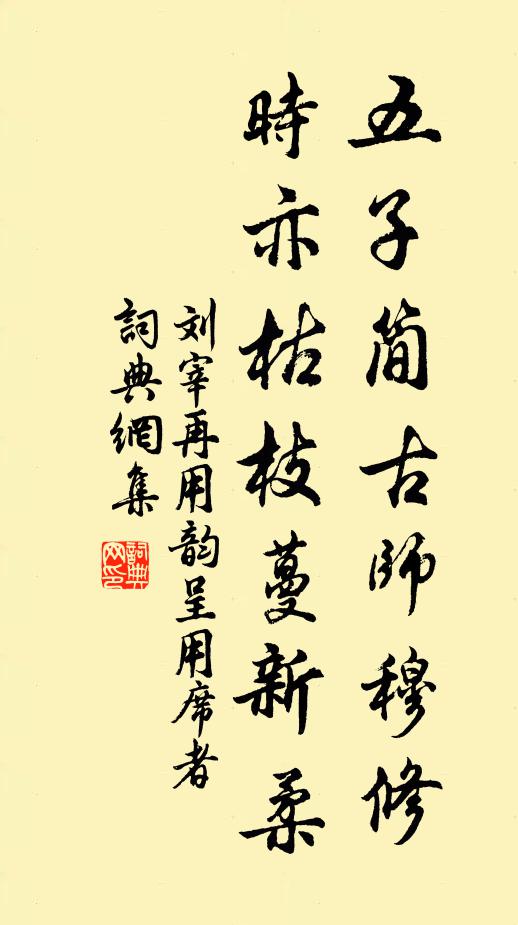 五子简古师穆修
時亦枯枝蔓新柔
刘宰再用韵呈用席者
詞典網集
詞典网印